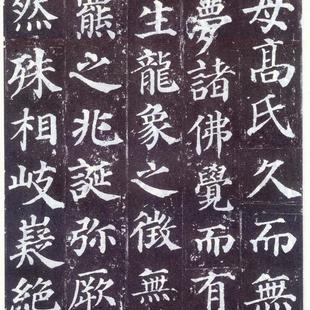 母髙氏久而無
夢諸佛覺而有
生龍象之徵無
羆之兆誕弥厥
然殊相岐嶷絕